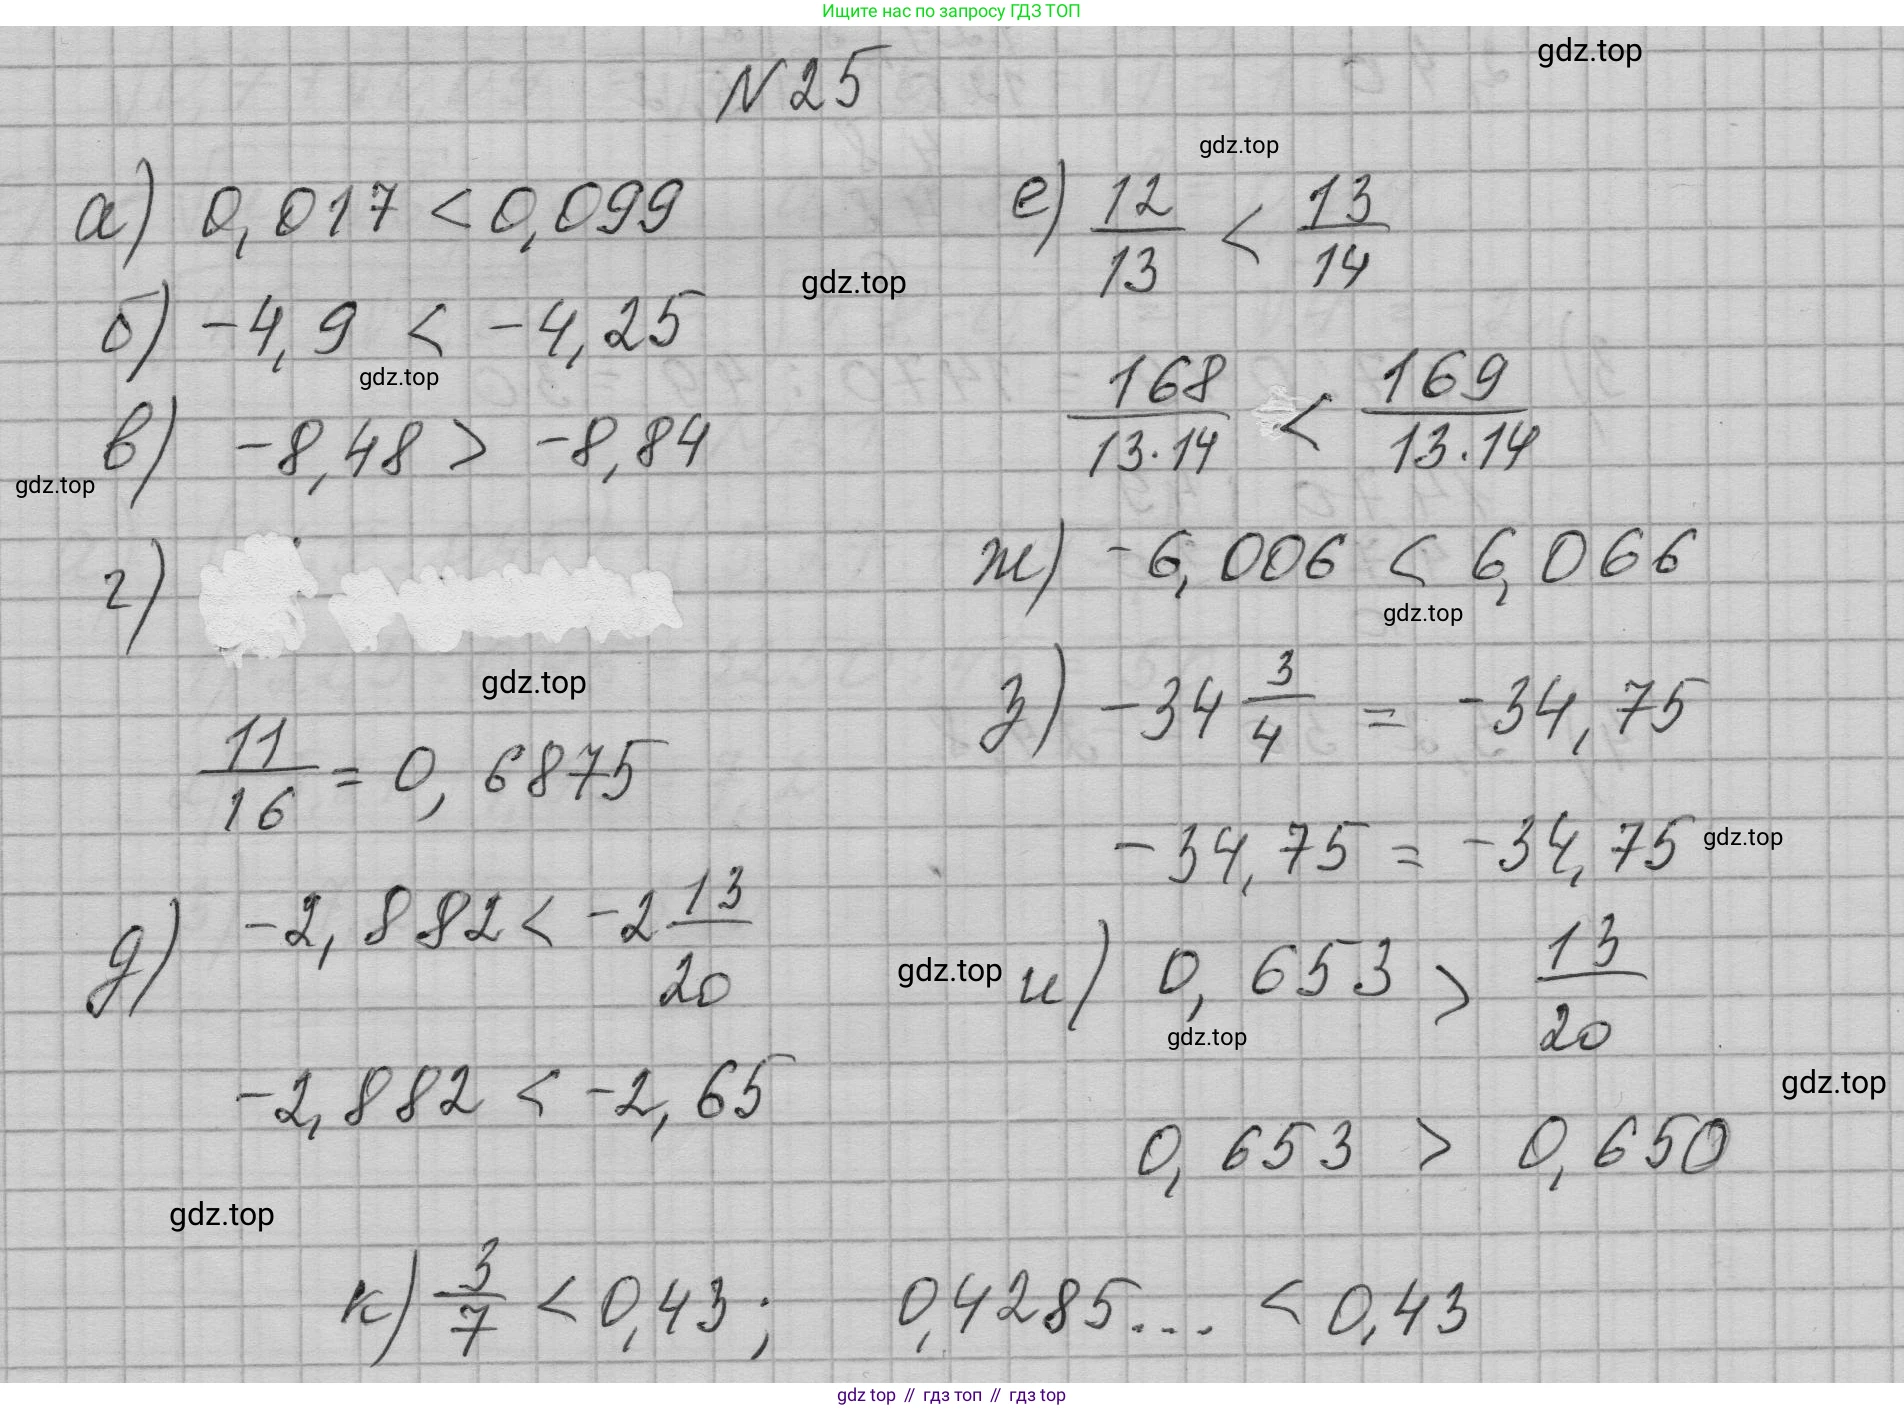 Ищите нас по запросу ГДЗ ТОП
gdz.top
N 25
а) 0,017 < 0,099
б) -4,9 < -4,25
в) -8,48 > -8,84
г)
11/16 = 0,6875
д) -2,882 < -2 13/20
-2,882 < -2,65
gdz.top
е) 12/13 < 13/14
gdz.top
168/13·14 < 169/13·14
gdz.top
gdz.top
ж) -6,006 < 6,066
gdz.top
gdz.top
з) -34 3/4 = -34,75
-34,75 = -34,75
gdz.top
gdz.top
и) 0,653 > 13/20
gdz.top
gdz.top
0,653 > 0,650
gdz.top
к) 3/7 < 0,43; 0,4285... < 0,43
gdz top // гдз топ // гдз top